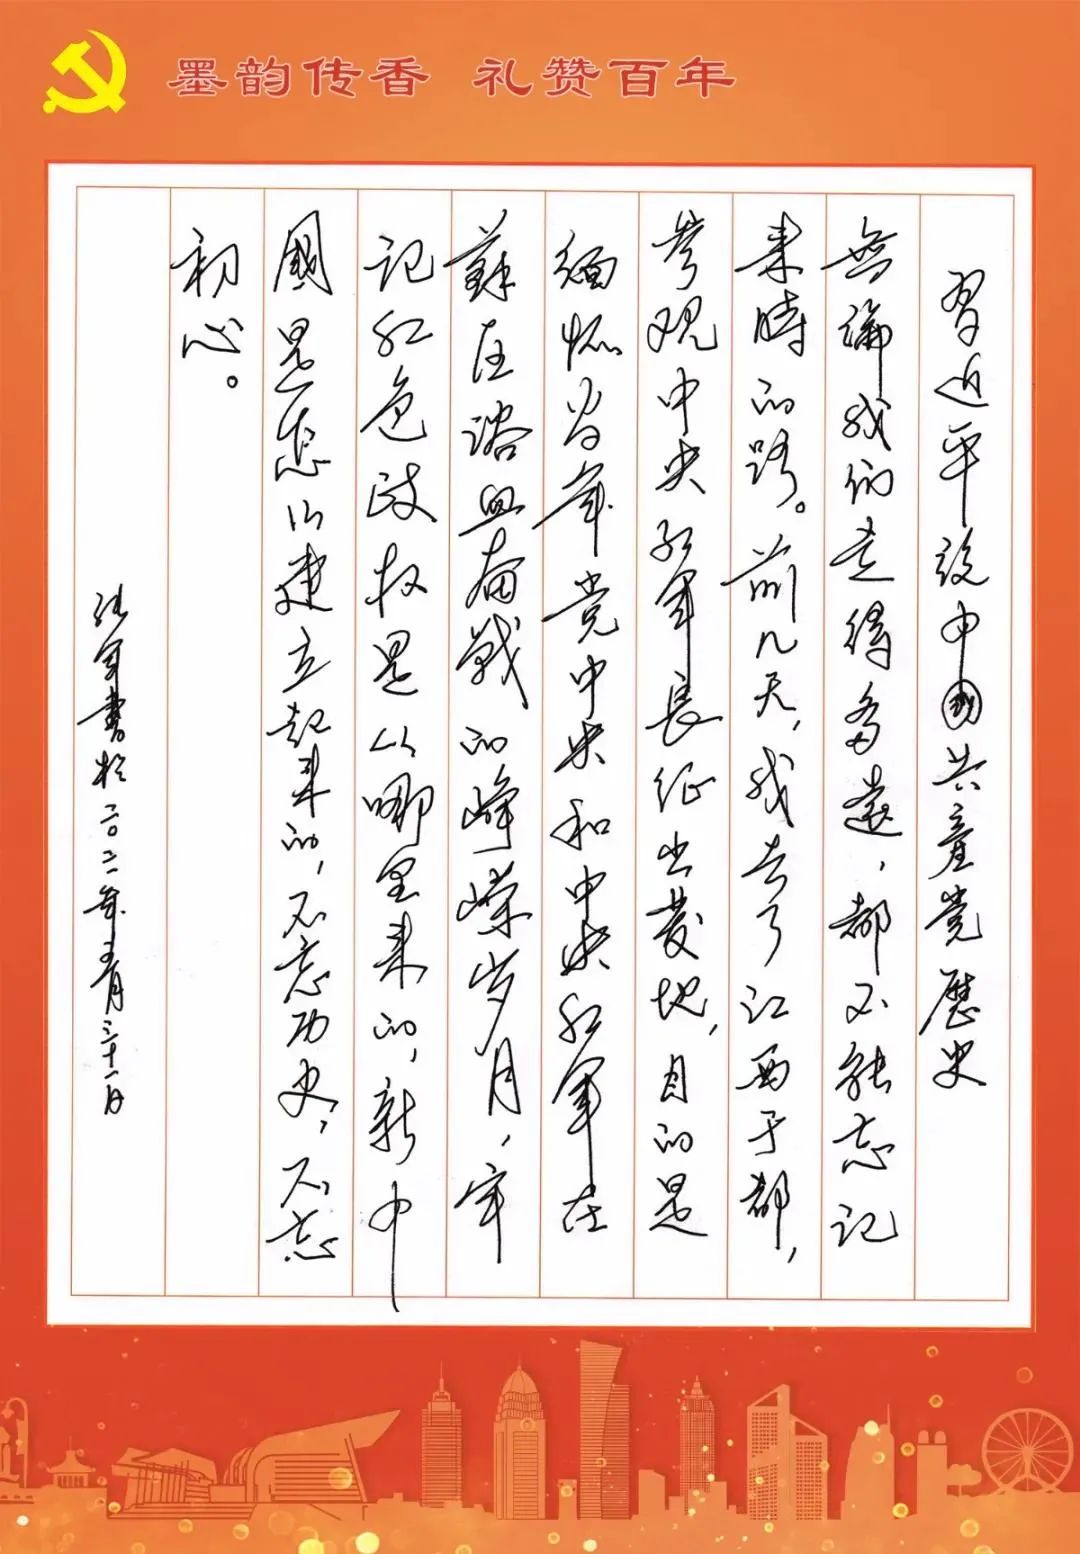 墨韵传香 礼赞百年
習近平说中國共產党歷史
無論我们走得多遠，都不能忘记
来時的路。前几天，我去了江西于都，
参观中央红軍長征出發地，目的是
缅怀当年党中央和中央红軍在
蘇区浴血奮戰的峥嵘岁月，牢
记红色政权是从哪里来的，新中
國是怎么建立起来的，不忘历史，不忘
初心。
書於二〇二一年五月三十一日